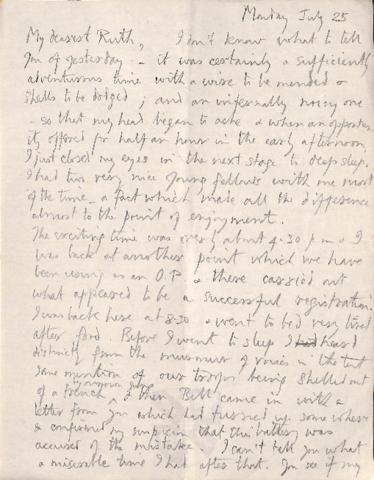 Monday July 25
My dearest Ruth, I don't know what to tell
you of yesterday - it was certainly a sufficiently
adventurous time with a wire to be mended &
shells to be dodged; and an infernally noisy one
- so that my head began to ache & when an opportun-
ity offered for half an hour in the early afternoon,
I just closed my eyes in the next stage to deep sleep.
I had two very nice young fellows with me most
of the time - a fact which made all the difference
almost to the point of enjoyment.
The exciting time was over by about 4.30 p.m. & I
was back at another point which we have
been using as an O.P. & there carried out
what appeared to be a successful registration.
I was back here at 8.30 & went to bed very tired
after food. Before I went to sleep I had heard
distinctly from the murmur of voices in the tent
some mention of our troops being shelled out
of a trench by our own guns & then Bill came in with a
letter from you which had fussed up some where
& confirmed my suspicion that this battery was
accused of the mistake. I can't tell you what
a miserable time I had after that. You see if my